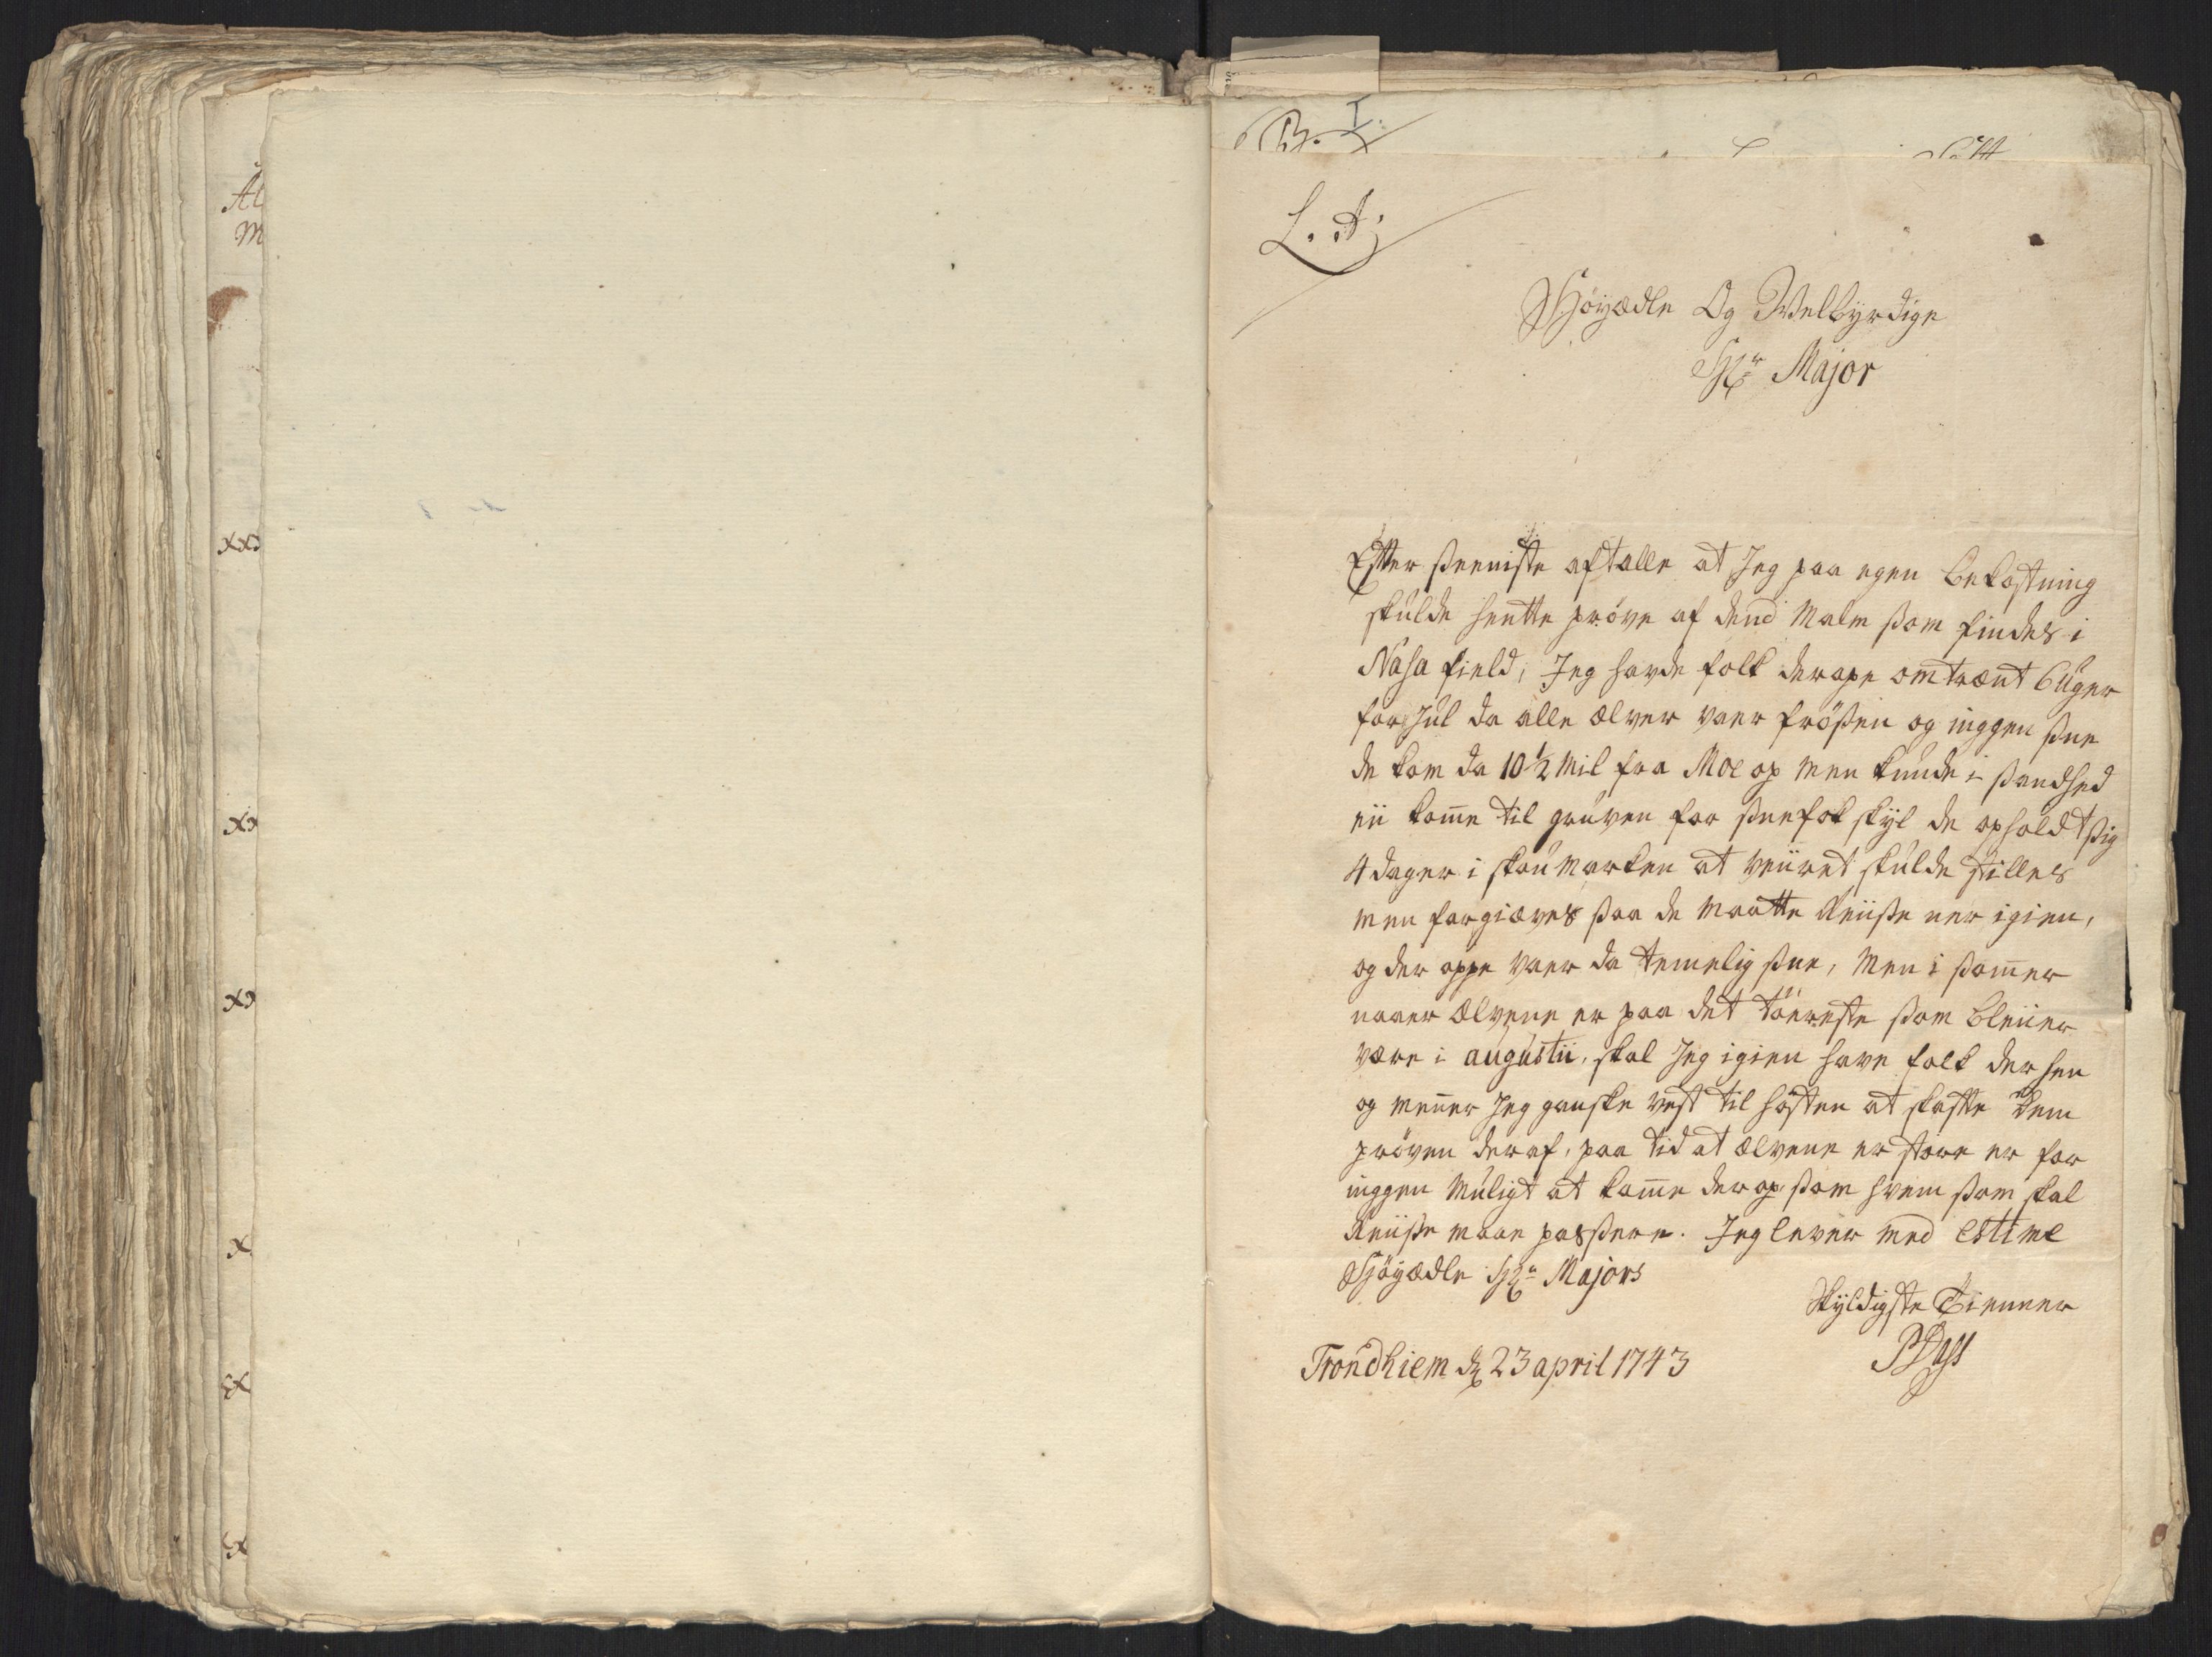 L. A;
Høyædle Og Welbyrdige
Hr Major
Efter seeniste aftalle at Jeg paa egen bekostning
skulde hentte prøve af dend Malm som findes i
Nasa field; Jeg havde folk derope omtrænt 6 uger
for Jul da alle ælver vaer frøssen og inggen snee
de kom da 10½ Mil fra Moe op men kunde i sandhed
eii komme til gruven for sneefok skyl de opholdt sig
4 dager i skoumarken at veiiret skulde stilles
men forgiæves saa de maatte Reiise ner igien,
og der oppe vaer da temelig snee, Men i sommer
naaer Ælvene er paa det tørreste som bleiiver
være i augustii, skal Jeg igien have folk der hen
og menner Jeg ganske vest til høsten at skaffe dem
prøven deraf, paa tid at ælvene er store er for
inggen Muligt at komme der op som hvem som skal
Reiise maae passere. Jeg lever med estime
Høyædle Hr Majors
Skyldigste Tienner
PDass
Trondhiem d 23 april 1743